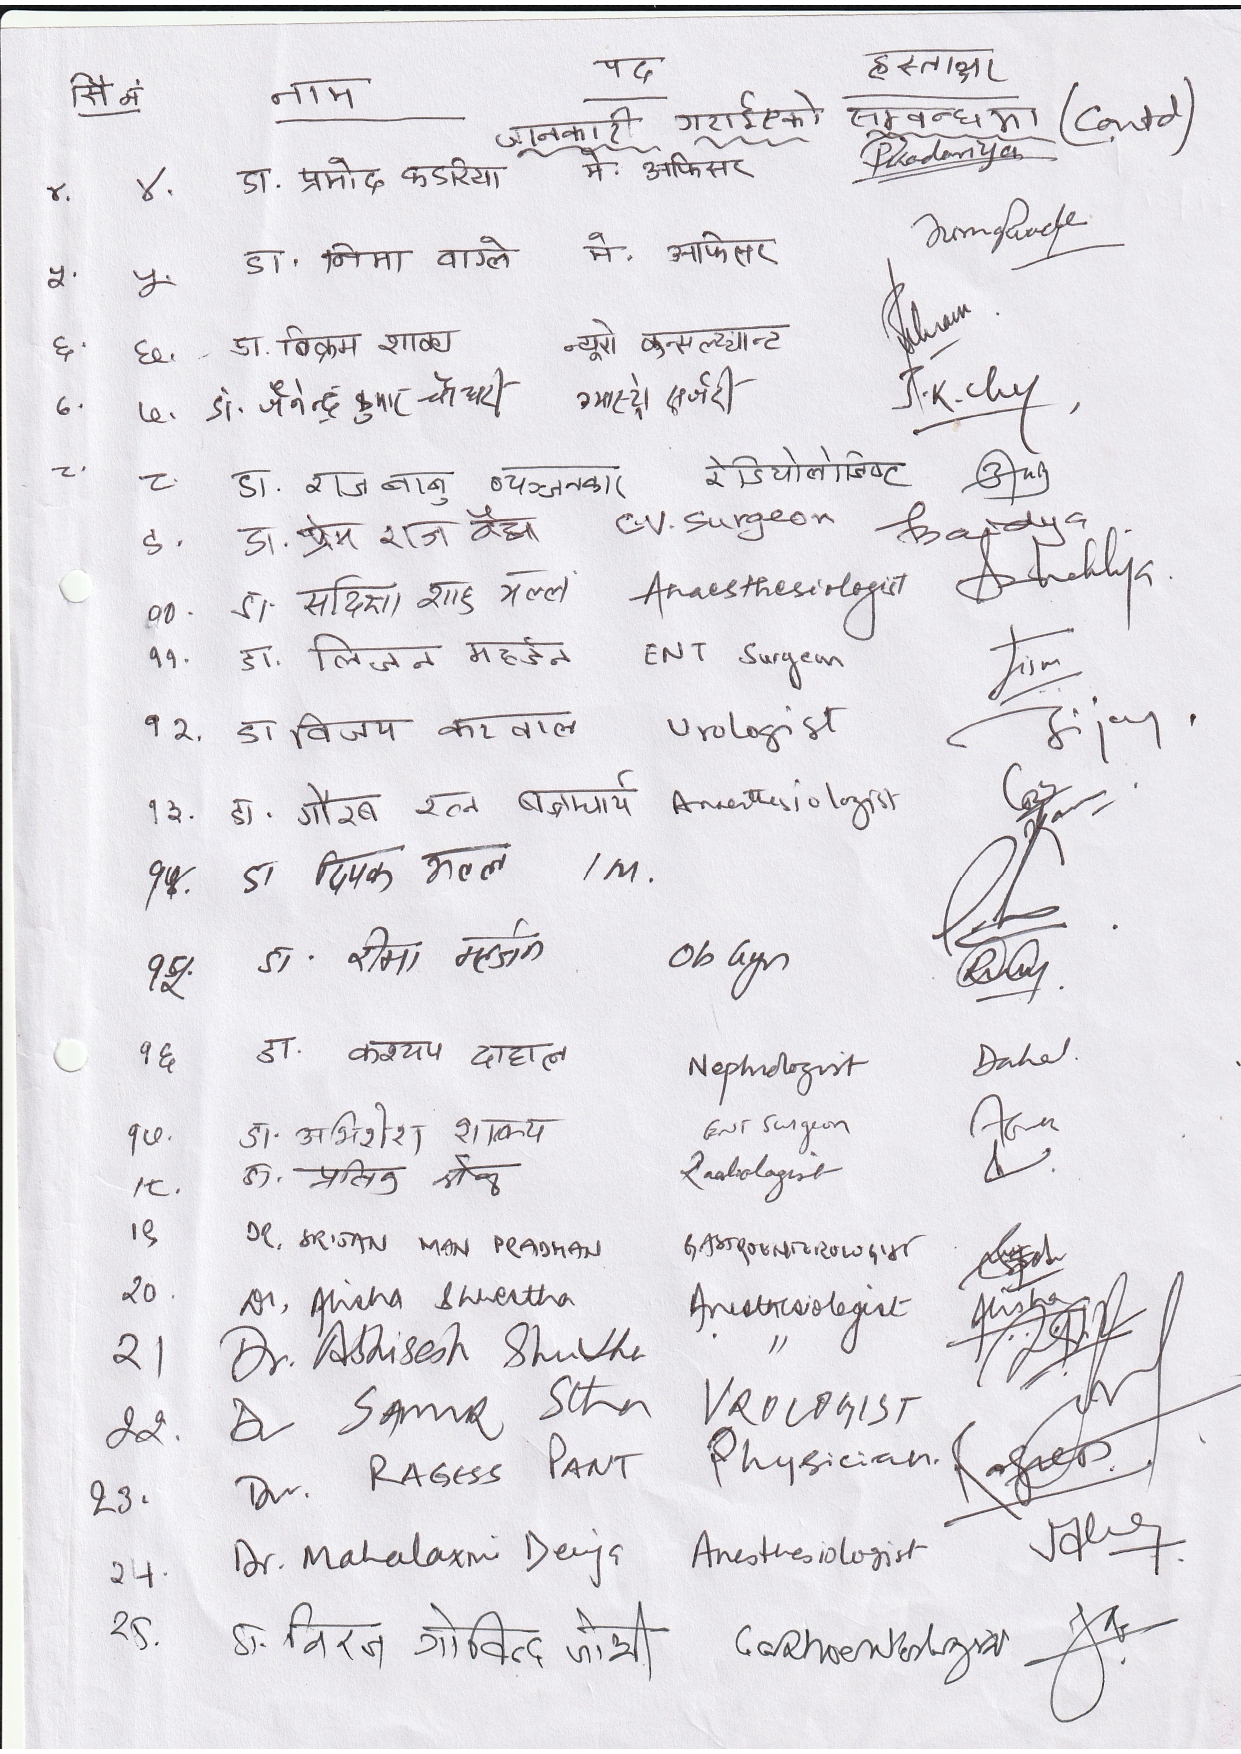 सि नं नाम पद हस्ताक्षर
जानकारी गराईएको सम्बन्धमा (Contd)
४. ४. डा. प्रमोद कडरिया मे. अफिसर Pkadariya
५. ५. डा. निमा वाग्ले मे. अफिसर
६. ६. डा. विक्रम शाक्य न्यूरो कन्सल्ट्यान्ट Bikram
७. ७. डा. जैनेन्द्र कुमार चौधरी ग्यास्ट्रो सर्जरी J.K.Chy
८. ८. डा. राज बाबु व्यञ्जनकार रेडियोलोजिष्ट
९. डा. प्रेम राज वैद्य CV. Surgeon Baidya
१०. डा. सदिक्षा शाह मल्ल Anaesthesiologist
११. डा. लिजन महर्जन ENT Surgeon
१२. डा विजय करवाल Urologist Bijay
१३. डा. गौरब रत्न बज्राचार्य Anaesthesiologist
१४. डा दिपक मल्ल IM.
१५. डा. रीमा महर्जन Ob Gyn
१६ डा. कश्यप दाहाल Nephrologist Dahal
१७. डा. अभिशेश शाक्य ENT Surgeon
१८. डा. प्रसिद्ध Radiologist
19 DR. SRIJAN MAN PRADHAN GASTROENTEROLOGIST
20. Dr. Alisha Shrestha Anesthesiologist Alisha
21 Dr. Abhisesh Shrestha "
22. Dr SAMIR Sthn UROLOGIST
23. Dr. RAGESS PANT Physician. Ragess
24. Dr. Mahalaxmi Deuja Anesthesiologist
25. डा. विरज गोविन्द जोशी